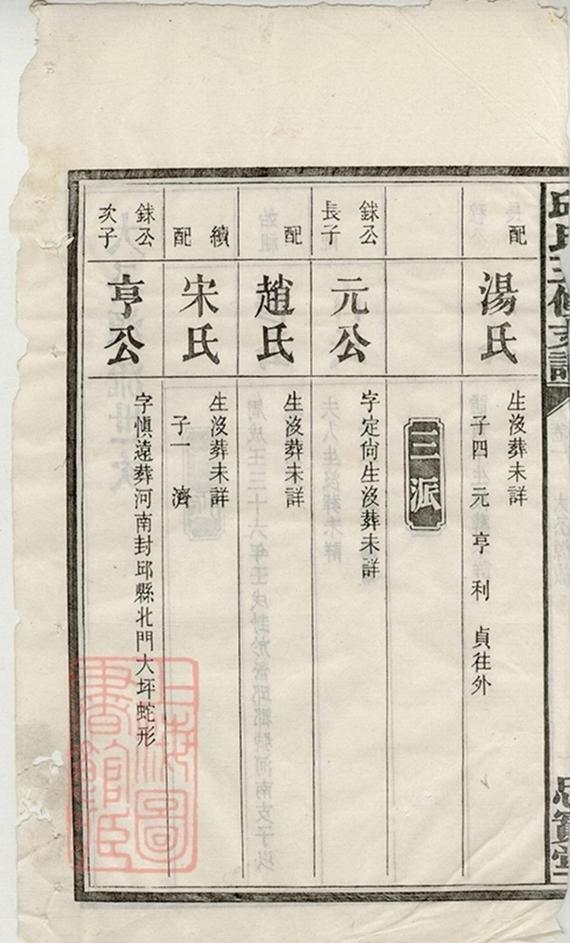 邱氏三修支譜
配
湯氏
生沒葬未詳
子四元亨利貞往外
三派
銇公
長子
元公
字定尙生沒葬未詳
配
趙氏
生沒葬未詳
續
配
宋氏
生沒葬未詳
子一 濟
銇公
次子
亨公
字愼遠葬河南封邱縣北門大坪蛇形
上海圖
書館藏